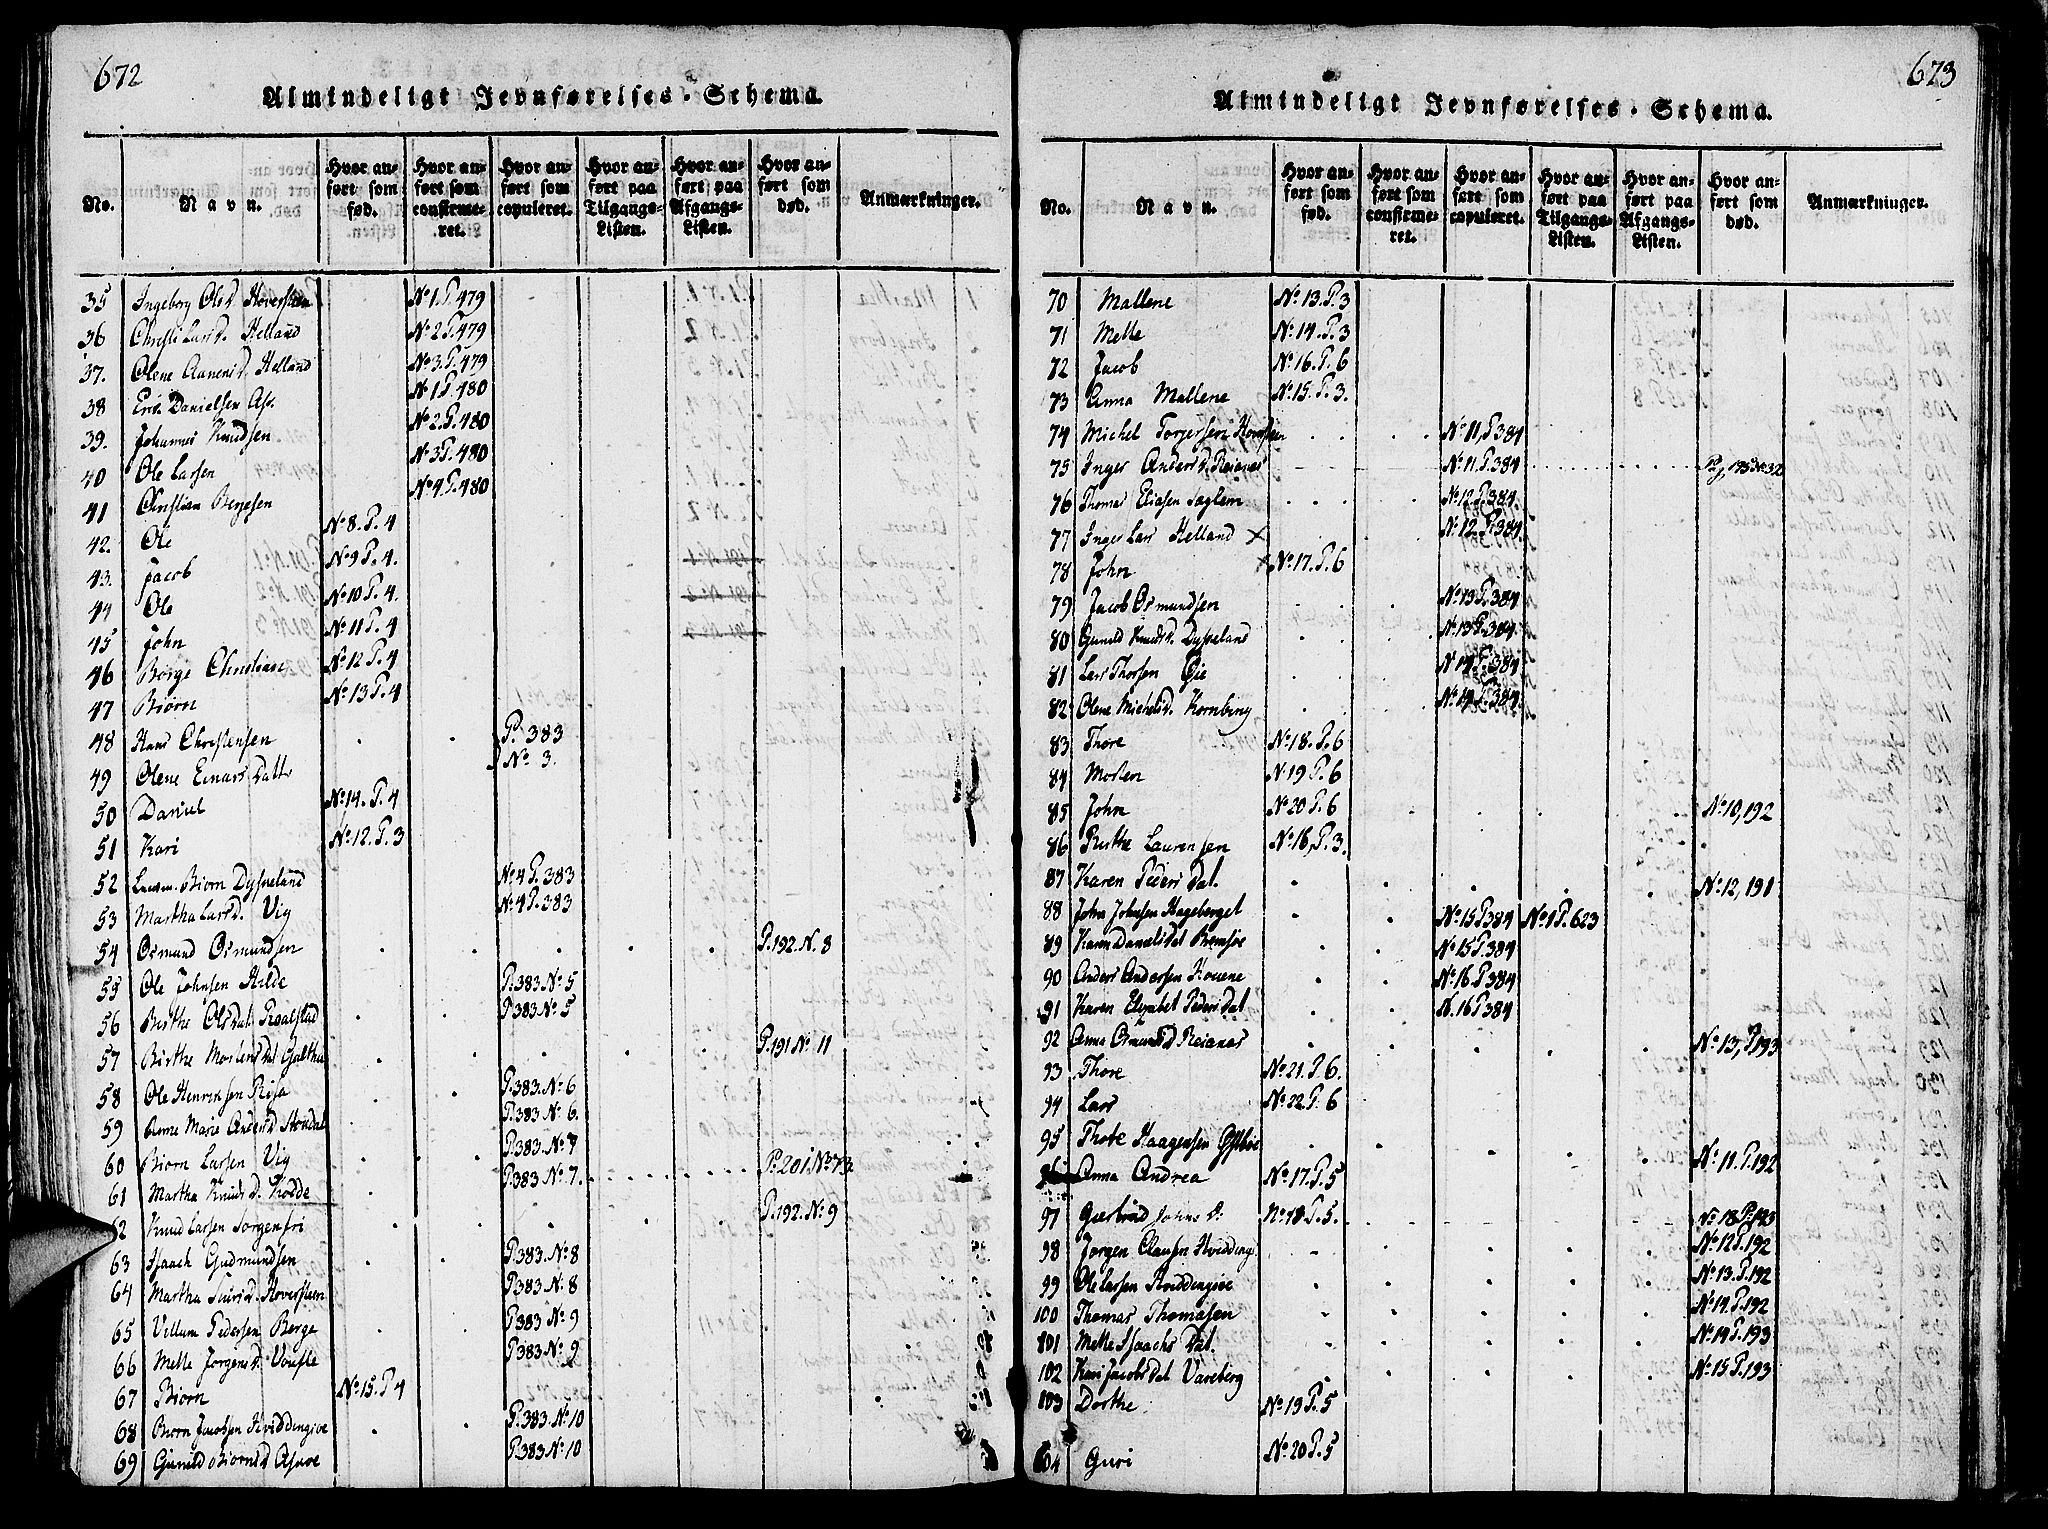 672
Almindeligt Jevnførelses-Schema.
No. Navn. Hvor anført som fød. Hvor anført som confirmeret. Hvor anført som copuleret. Hvor anført paa Tilgangs-Listen. Hvor anført paa Afgangs-Listen. Hvor anført som død. Anmærkninger.
35 Ingeborg Olsd. Høversteen No 1. P. 479
36 Christi Larsd. Helland No 2. P. 479
37. Olene Aanensd. Helland No 3. P. 479
38 Eric Danielsen No 1 P. 480
39. Johannes Knudsen No 2. P. 480
40 Ole Larsen No 3 P. 480
41 Christian Bergesen No 4 P. 480
42. Ole No 8. P. 4
43. Jacob No 9 P. 4.
44 Ole No 10 P. 4.
45 John No 11 P. 4
46 Børge Christian No 12 P. 4
47 Biørn No 13 P. 4
48 Hans Christensen P. 383
49 Olene Einars Datt. No 3.
50 Daniel No 14. P. 4
51 Kari No 12. P. 3
52 Biørn Dysseland No 4 P. 383
53 Martha Larsd. Vig No 4 P. 383
54 Osmund Osmundsen P. 192 N. 8
55 Ole Johnsen Hilde P. 383 No 5
56 Birthe Olsdat. P. 383 No 5
57 Birthe Mortensdat P. 191 No 11
58 Ole Henricsen Risa P. 383. No 6
59 Anne Marie Andersd. P. 383 No 6.
60 Biørn Larsen Vig P. 383. No 7
61 Martha Knuds d. P. 383 No 7. P. 201 No 73.
62 Knud Larsen Sorgenfri P. 192. No 9
63 Isaach Gudmundsen P. 383. No 8
64 Martha d. Høversteen P. 383 No 8
65 Villum Pedersen Berge P. 383 No 9
66 Mette Jørgensd. P. 383 No 9
67 Biørn No 15. P 4
68 Biørn Jacobsen P. 383. No 10
69 Gunild Biørnsd. P. 383 No 10
673
Almindeligt Jevnførelses-Schema.
No. Navn. Hvor anført som fød. Hvor anført som confirmeret. Hvor anført som copuleret. Hvor anført paa Tilgangs-Listen. Hvor anført paa Afgangs-Listen. Hvor anført som død. Anmærkninger.
70 Mallene No 13. P. 3
71 Mette No 14. P. 3
72 Jacob No 16. P. 6
73 Anna Mallene No 15. P. 3.
74 Michel Torgersen No 11, P 384
75 Inger Andersd. Reianes No 11. P. 384
76 Thomas Eliasen No 12 P. 384.
77 Inger Lars Helland X No 12 P. 384.
78 John No 17. P. 6
79 Jacob Osmundsen No 13 P. 384
80 Gunild Knudsd. Dysseland No 13 P. 384
81 Lars Thorsen Øie No 14 P. 384
82 Olene Michelsd. Kornberg No 14 P. 384.
83 Thore No 18. P. 6
84 Morten No 19 P. 6
85 John No 20 P. 6 No 10, 192
86 Birthe Laurensen No 16, P. 3.
87 Karen Peders Dat. No 12, 191
88 John Johnsen Hageberget No 15 P 384 No 1 P. 623
89 Karen Daniels Dat No 15 P. 384
90 Anders Andersen No 16 P 384
91 Karen Elisabet Peders Dat N. 16 P 384
92 Anna Osmunds D Reianes No 13, P 193
93 Thore No 21. P. 6.
94 Lars No 22. P. 6
95 Thore Haagensen No 11. P. 192
Anna Andrea No 17. P. 5
97 Johns D. No 18. P. 5.
98 Jørgen Clausen No 12 P. 192
99 Ole Larsen No 13. P. 192
100 Thomas Thomasen No 14. P. 192
101 Mette Isaachs Dat. No 14 P. 193
102 Kari Jacobsdat Vareberg No 15 P. 193
103 Dorthe No 19 P. 5
104 Guri No 20 P. 5